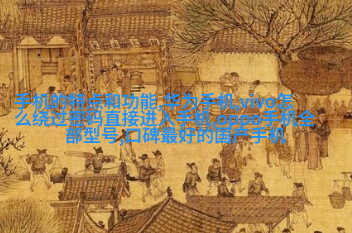 手机的特点和功能,华为手机,vivo怎
么绕过密码直接进入手机,oppo手机全
部型号,口碑最好的国产手机